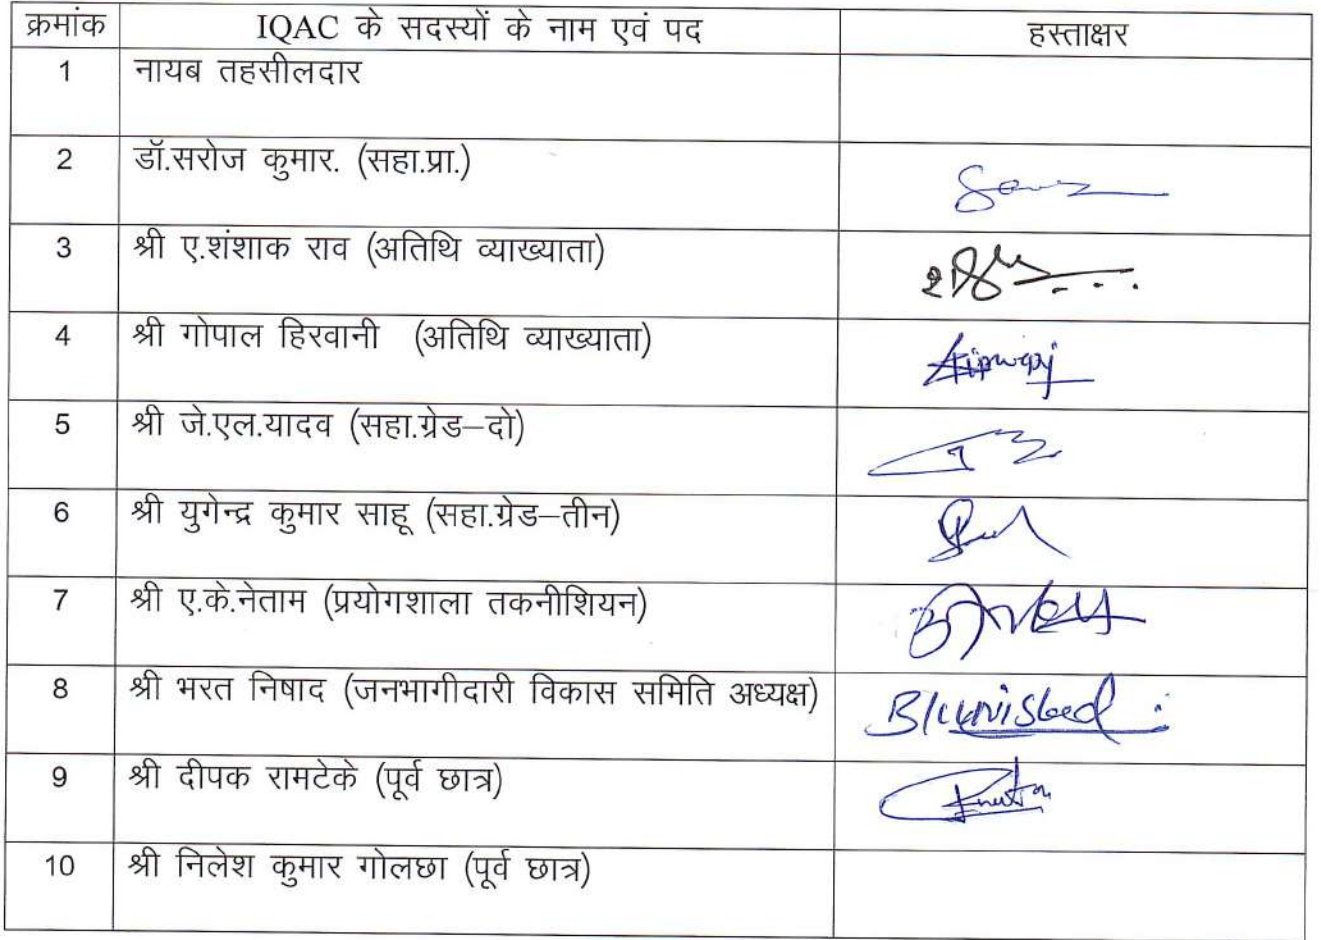 क्रमांक IQAC के सदस्यों के नाम एवं पद हस्ताक्षर
1 नायब तहसीलदार
2 डॉ.सरोज कुमार. (सहा.प्रा.)
3 श्री ए.शंशाक राव (अतिथि व्याख्याता)
4 श्री गोपाल हिरवानी (अतिथि व्याख्याता)
5 श्री जे.एल.यादव (सहा.ग्रेड–दो)
6 श्री युगेन्द्र कुमार साहू (सहा.ग्रेड–तीन)
7 श्री ए.के.नेताम (प्रयोगशाला तकनीशियन)
8 श्री भरत निषाद (जनभागीदारी विकास समिति अध्यक्ष)
9 श्री दीपक रामटेके (पूर्व छात्र)
10 श्री निलेश कुमार गोलछा (पूर्व छात्र)